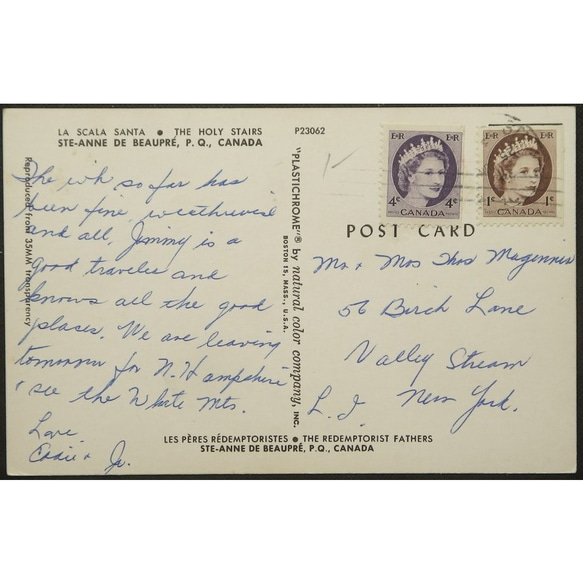 LA SCALA SANTA ● THE HOLY STAIRS
STE-ANNE DE BEAUPRÉ, P. Q., CANADA
P23062
The wk so far has
been fine, weatherwise
and all. Jimmy is a
good traveler and
knows all the good
places. We are leaving
tomorrow for N. Hampshire
see the White Mts.
Love,
Jr.
Reproduced from 35MM transparency
"PLASTICHROME"® by natural color company, INC.
BOSTON 15, MASS., U.S.A.
E R E R
4¢ 4¢
CANADA
E R E R
1¢ 1¢
CANADA
POST CARD
Mr + Mrs Thos Magennis
56 Birch Lane
Valley Stream
L. I. New York.
LES PÈRES RÉDEMPTORISTES ● THE REDEMPTORIST FATHERS
STE-ANNE DE BEAUPRÉ, P.Q., CANADA